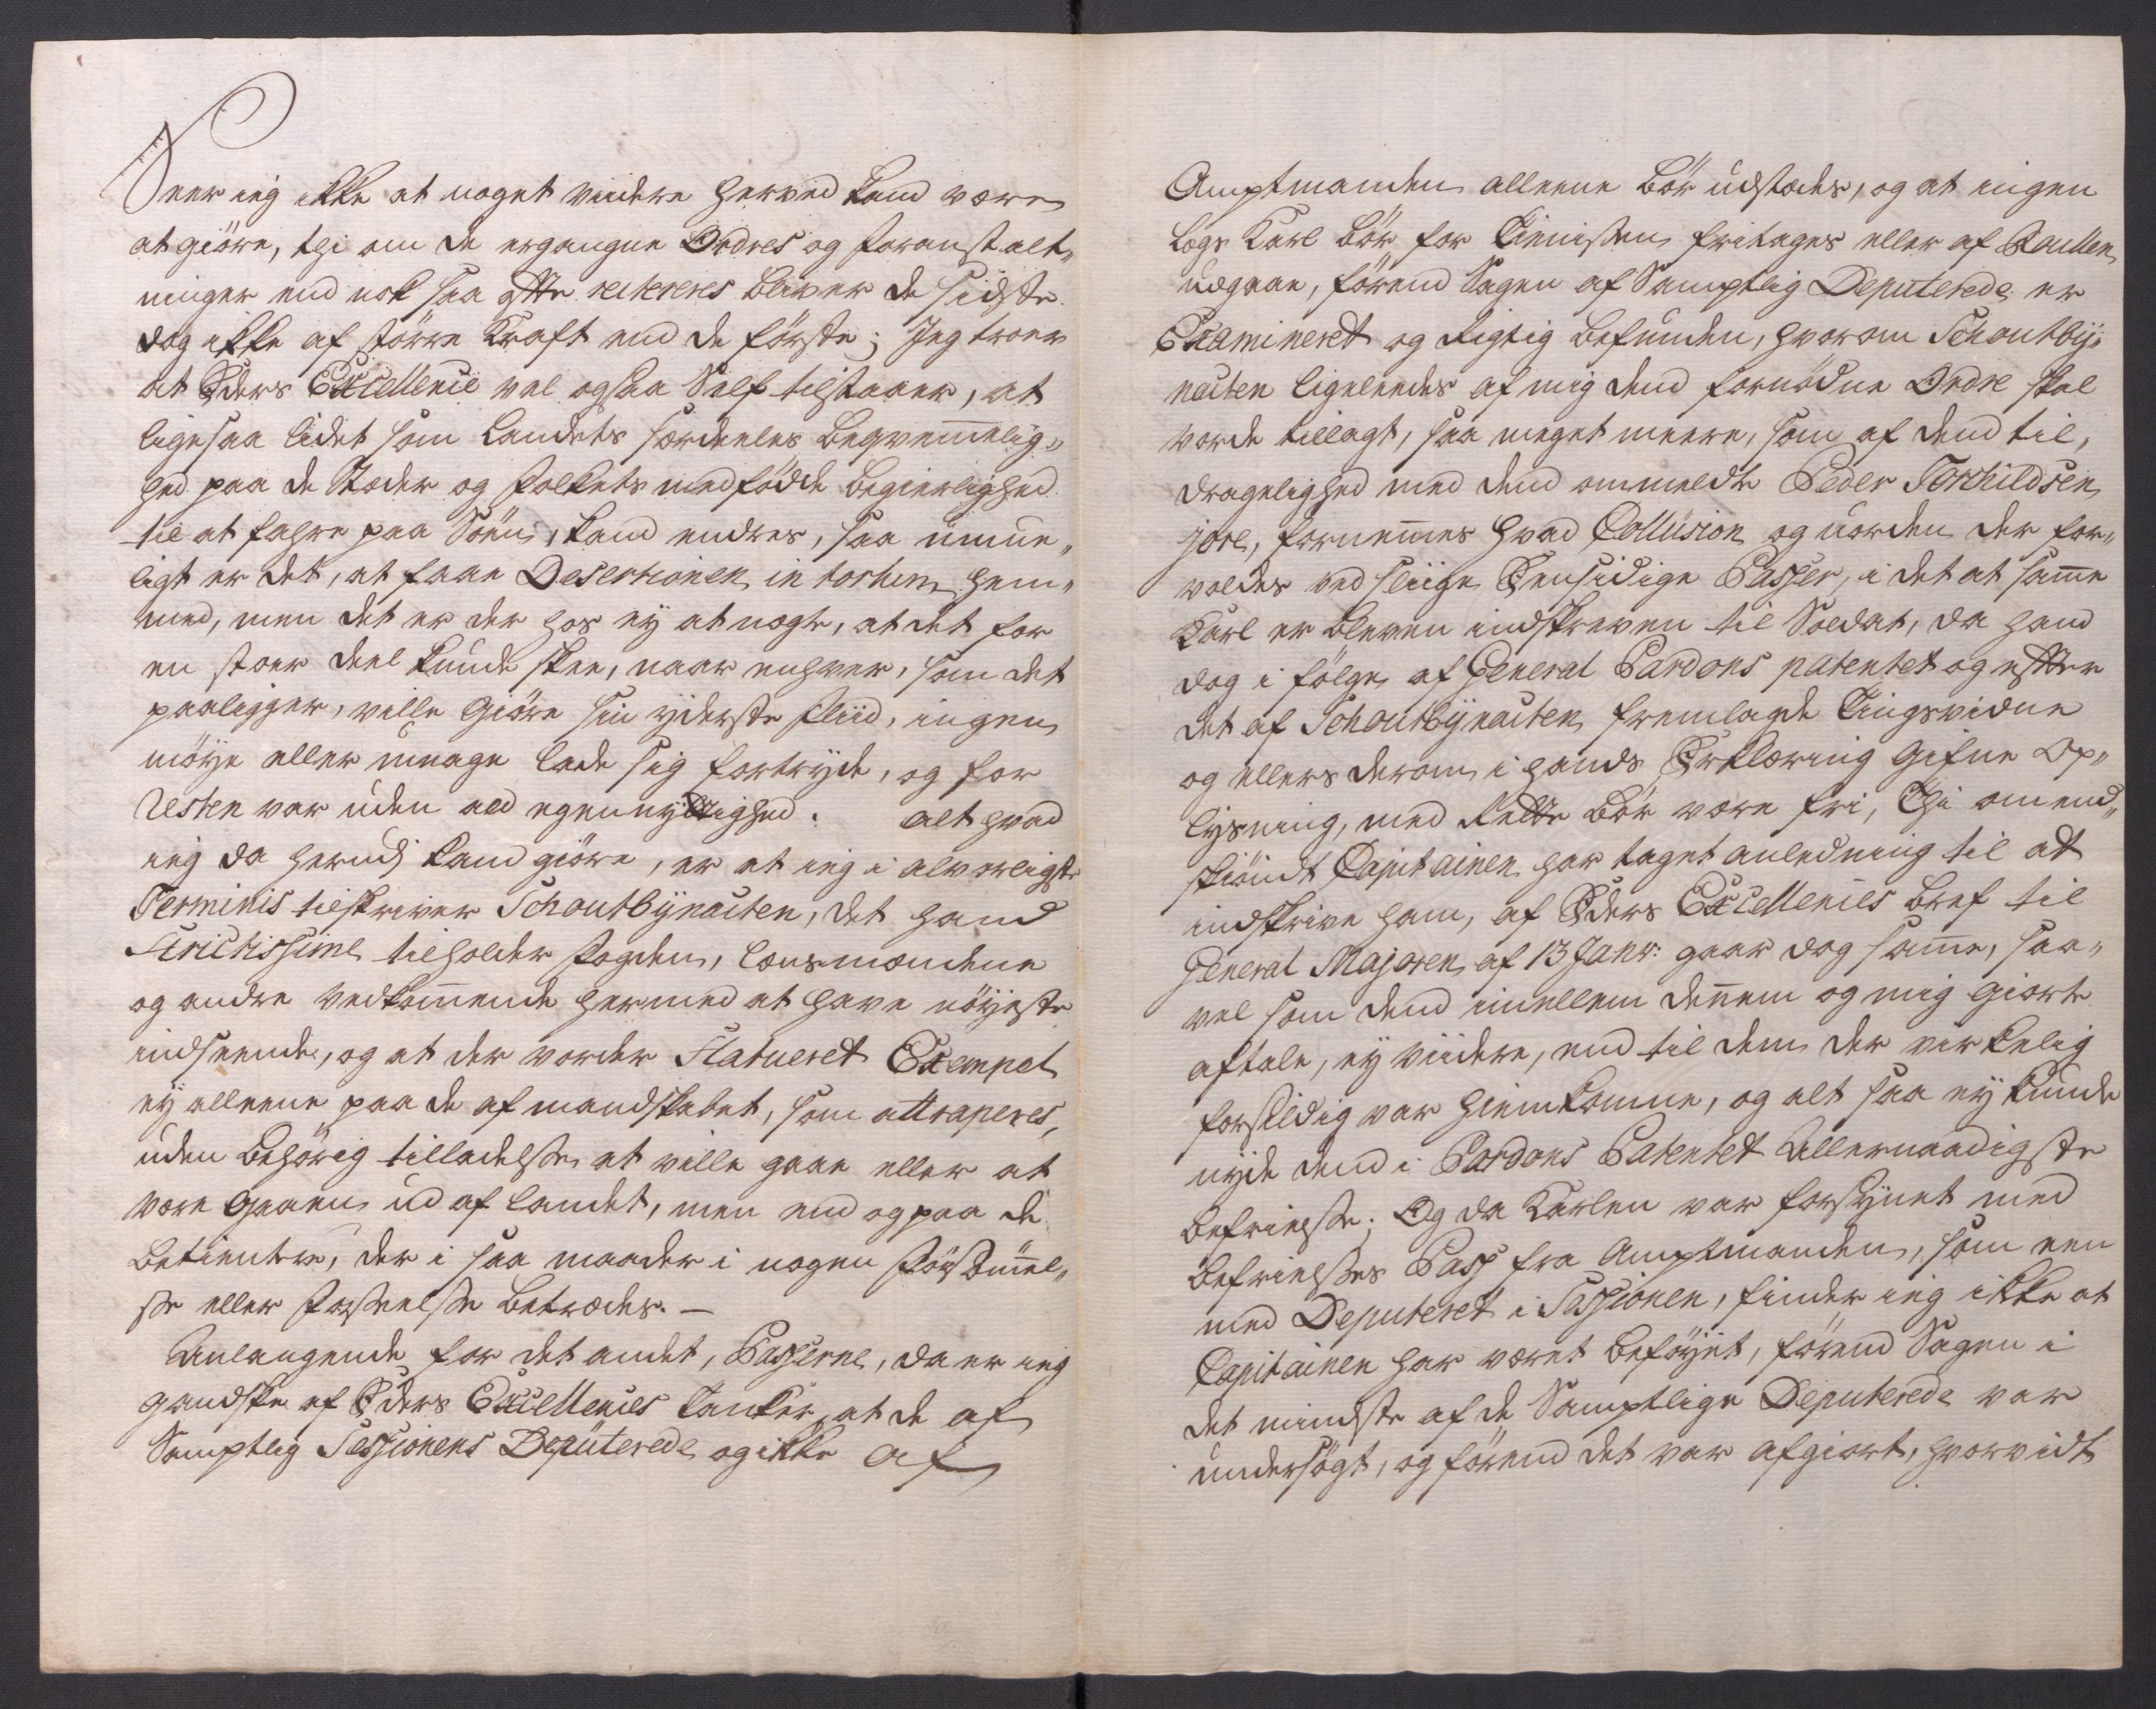 Seer ieg ikke at noget viidere herved kand være
at giöre, thi om de ergangne Ordres og foranstalt„
ninger end nok saa ofte reitereres bliver de sidste
dog ikke af större Kraft end de förste; Jeg troer
at Eders Excellence vel ogsaa Self tilstaaer, at
ligesaa lidet som Landets særdeeles beqvemmelig„
hed paa de Stæder og folkets medfödde begierlighed
til at fahre paa Söen, kand endres, saa umue„
ligt er det, at faae Desertionen in totum hem„
med, men det er der hos ey at nægte, at det for
en stoer deel kunde skee, naar enhver, som det
paaligger, ville giöre sin yderste fliid, ingen
möye eller umage lade sig fortryde, og for
resten var uden ald egennyttighed. Alt hvad
ieg da herudj kand giöre, er at ieg i alvorligste
Terminis tilskriver Schoutbynacten, det hand
strictissime tilholder fogden, lænsmændene
og andre vedkommende hermed at have nöyeste
indseende, og at der vorder Statueret Exempel
ey alleene paa de af mandskabet, som attraperes,
uden behörig tilladelsse at ville gaae eller at
være gaaen ud af landet, men end og paa de
betientere, der i saa maader i nogen forsömmel„
sse eller forseelsse betrædes. —
Anlangende for det andet, Passerne, da er ieg
gandske af Eders Excellences tanker, at de af
Samptlig Sessionens Deputerede og ikke af
Amptmanden alleene bör udstædes, og at ingen
Lægs Karl bör for Tienisten fritages eller af Roullen
udgaae, förend Sagen af Samptlig Deputerede er
Examineret og rigtig befunden, hvorom Schoutby„
nacten ligeleedes af mig dend fornödne Ordre skal
vorde tillagt, saa meget meere, som af dend til„
dragelighed med dend ommeldte Peder Torkildsen
Jore, fornemmes hvad Collusion og uorden der for„
voldes ved sliige Eensidige Passer, i det at samme
Karl er bleven indskreven til Soldat, da hand
dog i fölge af General Pardons patentet og efter
det af Schoutbynacten fremlagde Tingsvidne
og ellers derom i hands Erklæring gifne op„
lysning, med Rette bör være fri, Thi omend„
skiöndt Capitainen har taget anledning til at
indskrive ham, af Eders Excellences bref til
General Majoren af 13 Janv: gaar dog samme, saa„
vel som dend imellem dennem og mig giorte
aftale, ey viidere, end til dem der virkelig
forsildig var hiemkomne, og alt saa ey kunde
nyde dend i Pardons Patentet Allernaadigste
befrielsse; Og da Karlen var forsynet med
befrielsses Pass fra Amptmanden, som een
med Deputeret i Sessionen, finder ieg ikke at
Capitainen har været beföyet, förend Sagen i
det mindste af de Samptlige Deputerede var
undersögt, og förend det var afgiort, hvorvidt